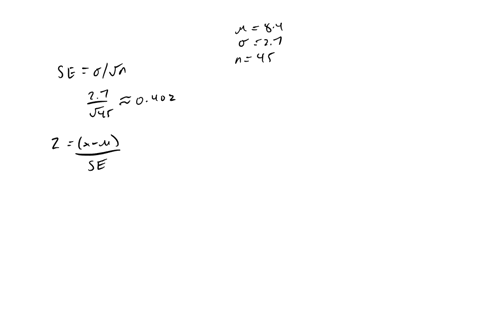 μ = 8.4
σ = 2.7
n = 45
SE = σ/√n
2.7/√45 ≈ 0.402
Z = (x-μ)/SE